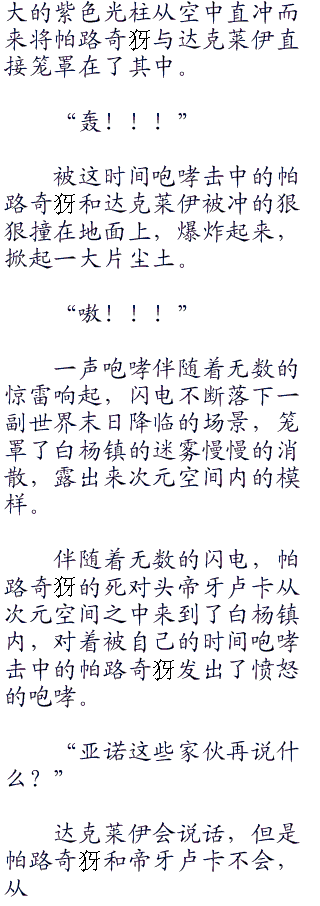 大的紫色光柱从空中直冲而
来将帕路奇犽与达克莱伊直
接笼罩在了其中。
“轰！！！”
被这时间咆哮击中的帕
路奇犽和达克莱伊被冲的狠
狠撞在地面上，爆炸起来，
掀起一大片尘土。
“嗷！！！”
一声咆哮伴随着无数的
惊雷响起，闪电不断落下一
副世界末日降临的场景，笼
罩了白杨镇的迷雾慢慢的消
散，露出来次元空间内的模
样。
伴随着无数的闪电，帕
路奇犽的死对头帝牙卢卡从
次元空间之中来到了白杨镇
内，对着被自己的时间咆哮
击中的帕路奇犽发出了愤怒
的咆哮。
“亚诺这些家伙再说什
么？”
达克莱伊会说话，但是
帕路奇犽和帝牙卢卡不会，
从